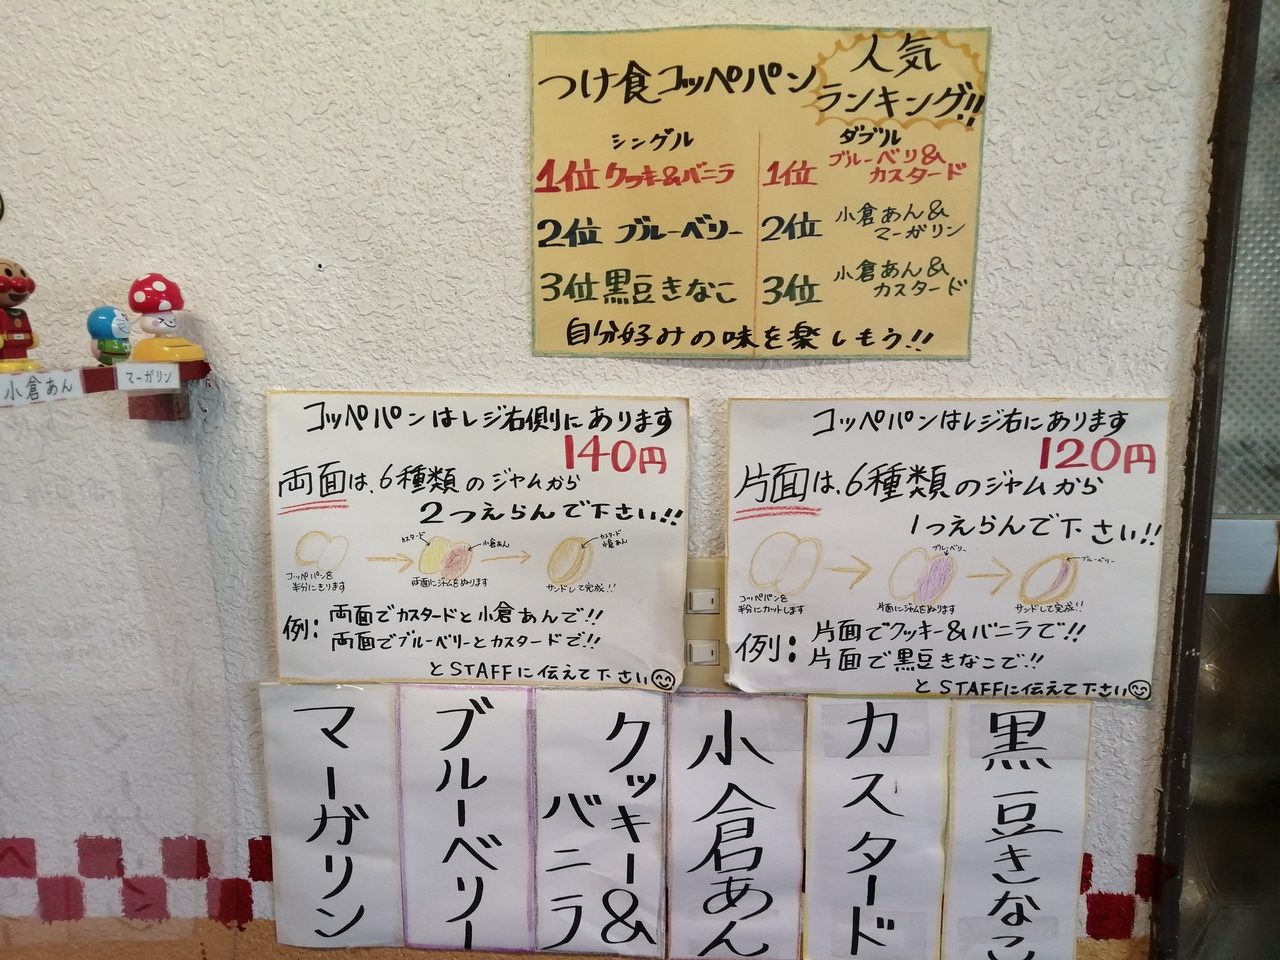 つけ食コッペパン
人気
ランキング!!
シングル
1位 クッキー&バニラ
2位 ブルーベリー
3位 黒豆きなこ
ダブル
1位 ブルーベリ&
カスタード
2位 小倉あん&
マーガリン
3位 小倉あん&
カスタード
自分好みの味を楽しもう!!
小倉あん
マーガリン
コッペパンはレジ右側にあります
140円
両面は、6種類のジャムから
2つえらんで下さい!!
カスタード
小倉あん
カスタード
小倉あん
コッペパンを
半分にきります
両面にジャムをぬります
サンドして完成!!
例:両面でカスタードと小倉あんで!!
両面でブルーベリーとカスタードで!!
とSTAFFに伝えて下さい
コッペパンはレジ右にあります
120円
片面は、6種類のジャムから
1つえらんで下さい!!
ブルーベリー
ブルーベリー
コッペパンを
半分にカットします
片面にジャムをぬります
サンドして完成!!
例:片面でクッキー&バニラで!!
片面で黒豆きなこで!!
とSTAFFに伝えて下さい
マーガリン
ブルーベリー
クッキー&
バニラ
小倉あん
カスタード
黒豆きなこ